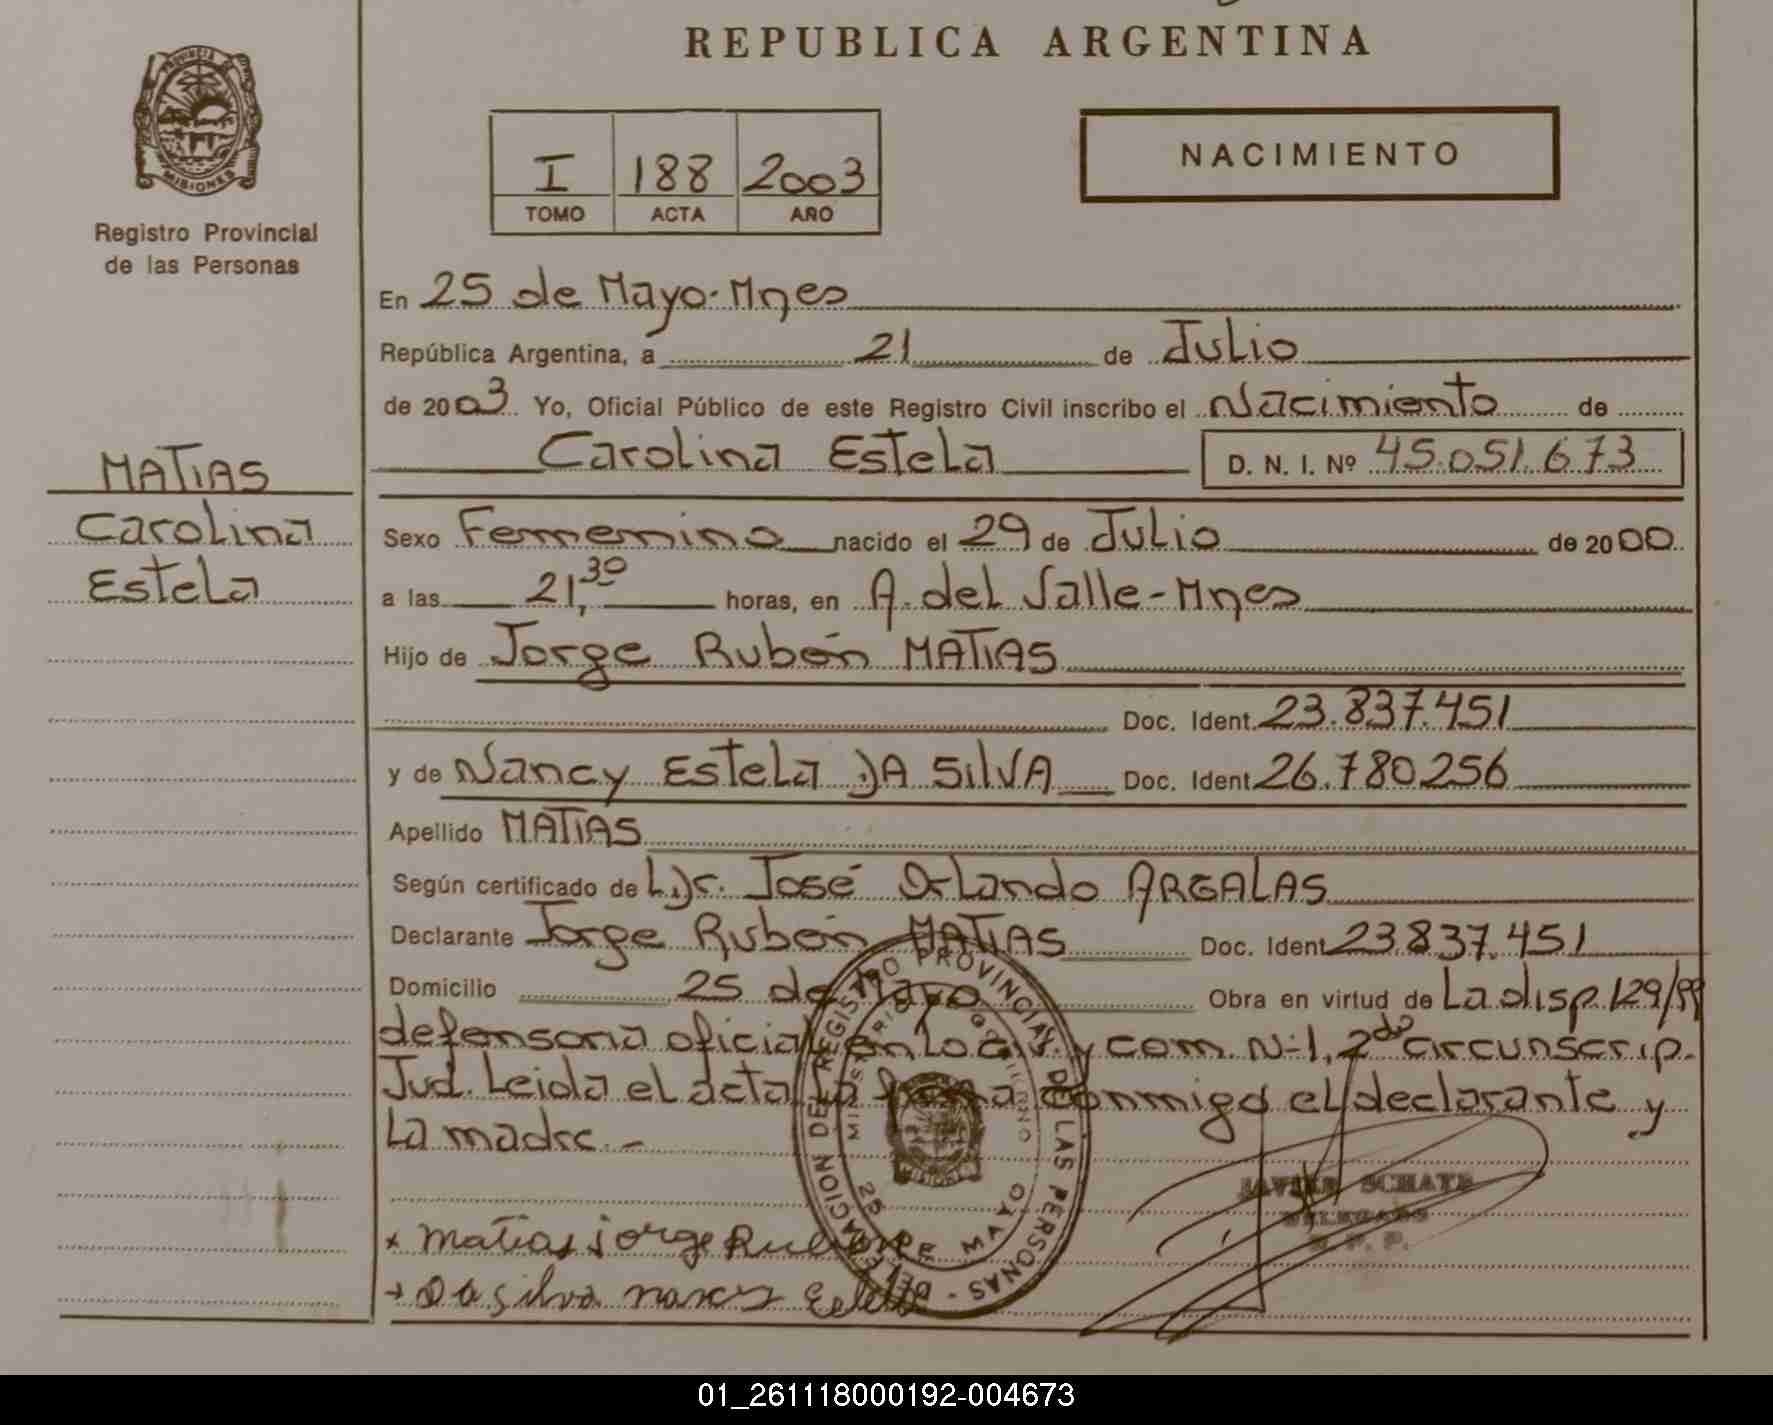 REPUBLICA ARGENTINA
PROVINCIA DE
MISIONES
Registro Provincial
de las Personas
I 188 2003
TOMO ACTA AÑO
NACIMIENTO
MATIAS
Carolina
Estela
En 25 de Mayo-Mnes
República Argentina, a 21 de Julio
de 2003 Yo, Oficial Público de este Registro Civil inscribo el Nacimiento de
Carolina Estela D. N. I. Nº 45.051.673
Sexo Femenino nacido el 29 de Julio de 2000
a las 21,30 horas, en A. del Valle-Mnes
Hijo de Jorge Rubén MATIAS
Doc. Ident. 23.837.451
y de Nancy Estela DA SILVA Doc. Ident. 26.780256
Apellido MATIAS
Según certificado de L.Dr. José Orlando ARGALAS
Declarante Jorge Rubén MATIAS Doc. Ident. 23.837.451
Domicilio 25 de Mayo Obra en virtud de La disp 129/99
defensoria oficial en lo civ. y com. N-1, 2do circunscrip.
Jud. Leida el acta la firma conmigo el declarante y
La madre.-
DELEGACION DEL REGISTRO PROVINCIAL DE LAS PERSONAS -
MINISTERIO GOBIERNO
25 DE MAYO
JAVIER SCHAYE
DELEGADO
R. P. P.
x matias jorge Ruben
+ Da silva nancy Estela
01_261118000192-004673